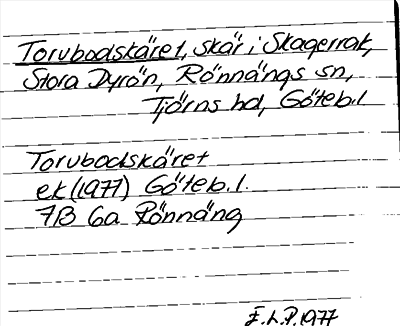 Torvbodskäret, skär i Skagerrak,
Stora Dyrön, Rönnängs sn,
Tjörns hd, Göteb.l
Torvbodskäret
ek (1977) Göteb.l.
7B 6a Rönnäng
E.L.P. 1977